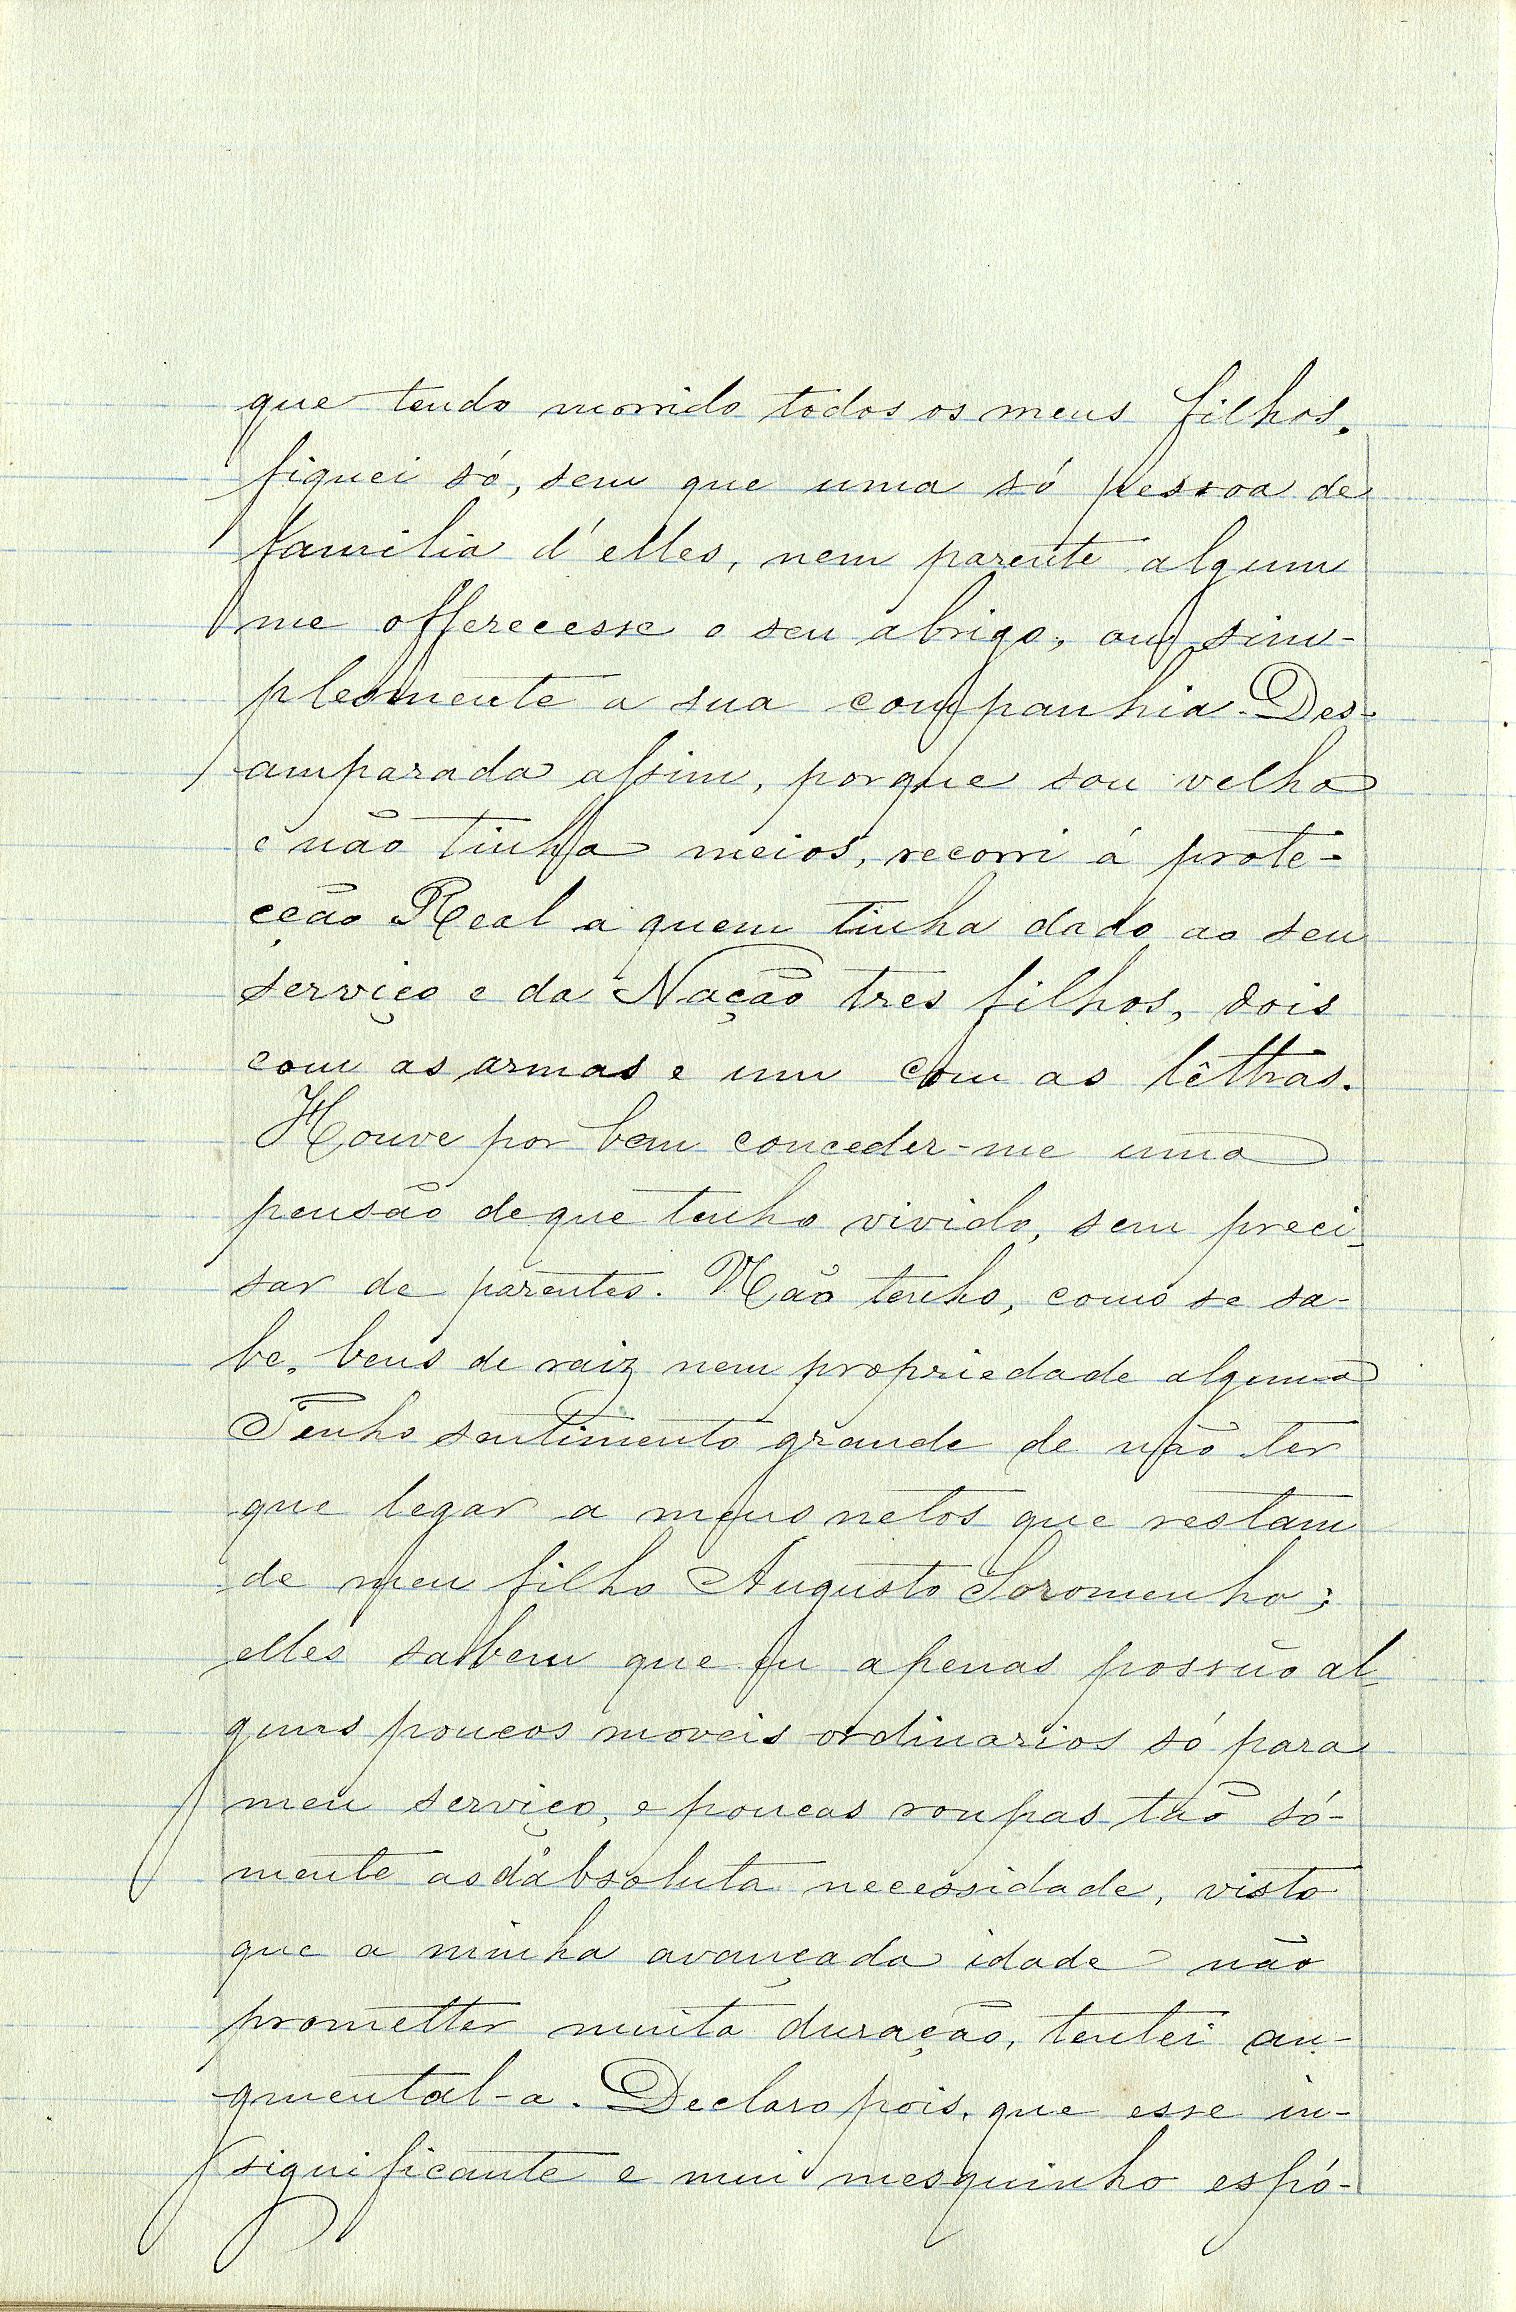 que tendo morrido todos os meus filhos,
fiquei só, sem que uma só pessoa de
familia d'elles, nem parente algum
me offerecesse o seu abrigo, ou sim-
plesmente a sua companhia. Des-
amparada assim, porque sou velha
e não tinha meios, recorri á prote-
cção Real a quem tinha dado ao seu
serviço e da Nação tres filhos, dois
com as armas e um com as lêttras.
Houve por bem conceder-me uma
pensão de que tenho vivido, sem preci-
sar de parentes. Não tenho, como se sa-
be, bens de raiz nem propriedade alguma
Tenho sentimento grande de não ter
que legar a meus netos que restam
de meu filho Augusto Soromenho;
elles sabem que eu apenas possuo al-
guns poucos moveis ordinarios só para
meu serviço, e poucas roupas tão só-
mente as d'absoluta necessidade, visto
que a minha avançada idade não
prometter muita duração, tentei au-
gmental-a. Declaro pois, que esse in-
significante e mui mesquinho espó-